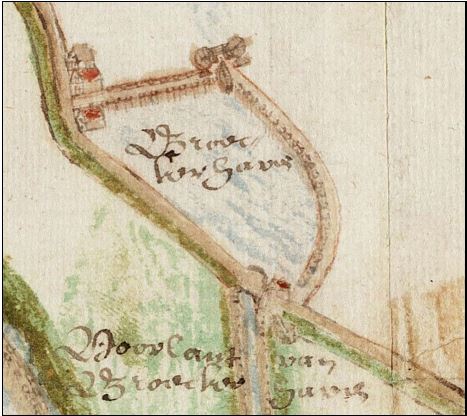 Broec
ker havis
Voorlant van
Broecker havis